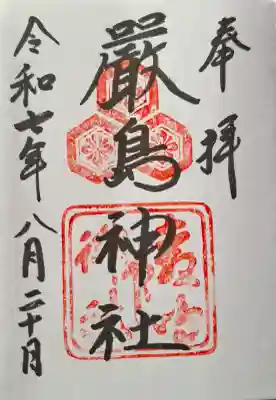 奉拝
厳島神社
令和七年八月二十日